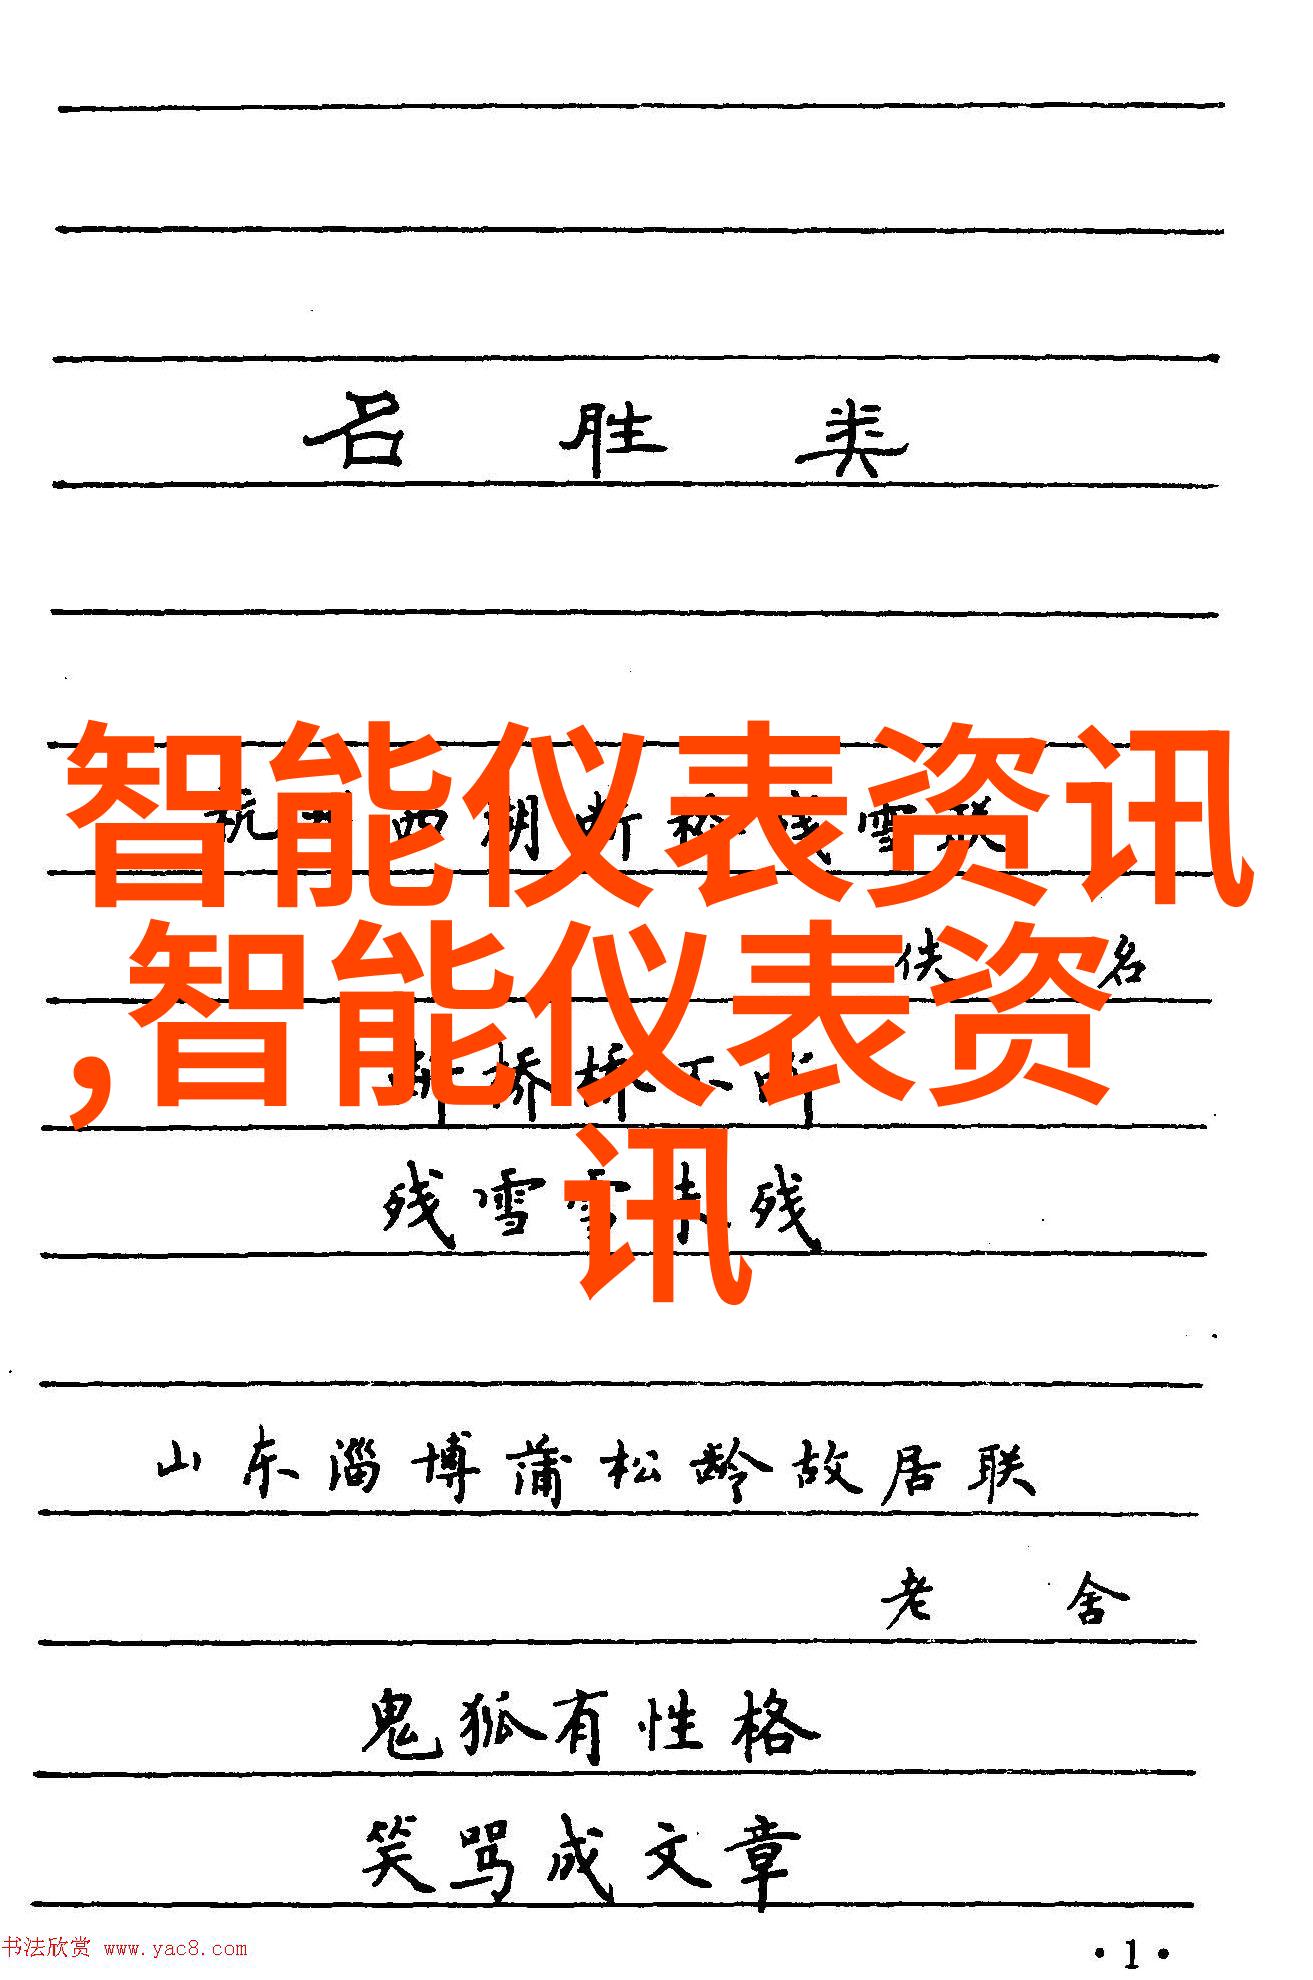 名胜类
智能仪表资讯
西湖断桥残雪联
佚名
,智能仪表资
断桥桥不断
讯
残雪雪未残
山东淄博蒲松龄故居联
老舍
鬼狐有性格
笑骂成文章
书法欣赏 www.yac8.com
·1·